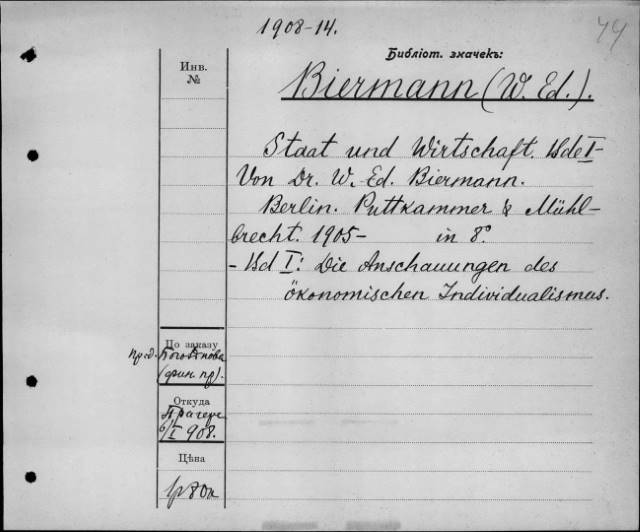 1908-14.
44
Библіот. значекъ:
Инв.
№
Biermann (W. Ed.).
Staat und Wirtschaft. Bde I-
Von Dr. W. Ed. Biermann.
Berlin. Puttkammer & Mühl-
brecht. 1905- in 8°
- Bd I: Die Anschauungen des
ökonomischen Individualismus.
По заказу
(фин. пр).
Откуда
6/I 908.
Цѣна
1р 80к